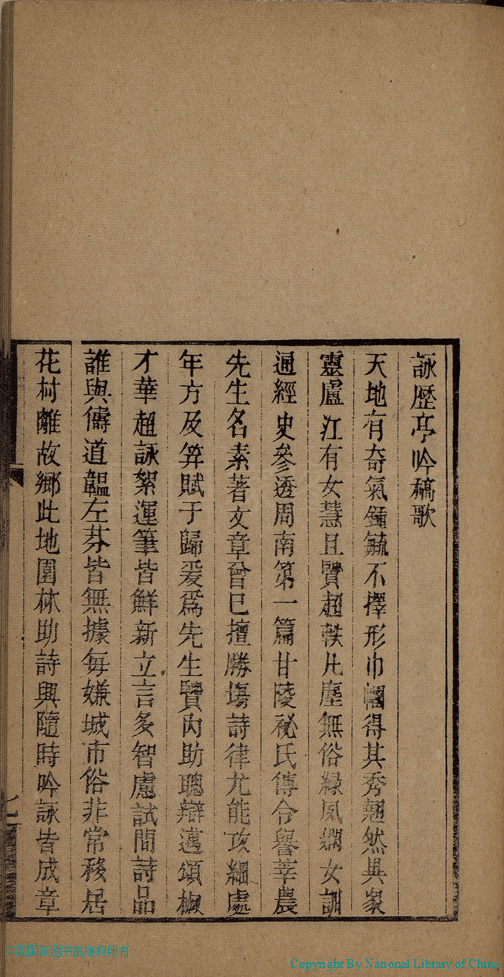 詠歷亭吟稿歌
天地有奇氣鍾毓不擇形巾幗得其秀翹然異眾
靈廬江有女慧且賢超軼凡塵無俗緣夙嫻女訓
通經史參透周南第一篇甘陵祕氏傳合譽莘農
先生名素著文章曾已擅勝場詩律尤能攻細處
年方及笄賦于歸爰為先生賢內助聰辯邁頌椒
才華超詠絮運筆皆鮮新立言多智慮試問詩品
誰與儔道韞左芬皆無據每嫌城市俗非常移居
花村離故鄉此地園林助詩興隨時吟詠皆成章
Copyright By National Library of China